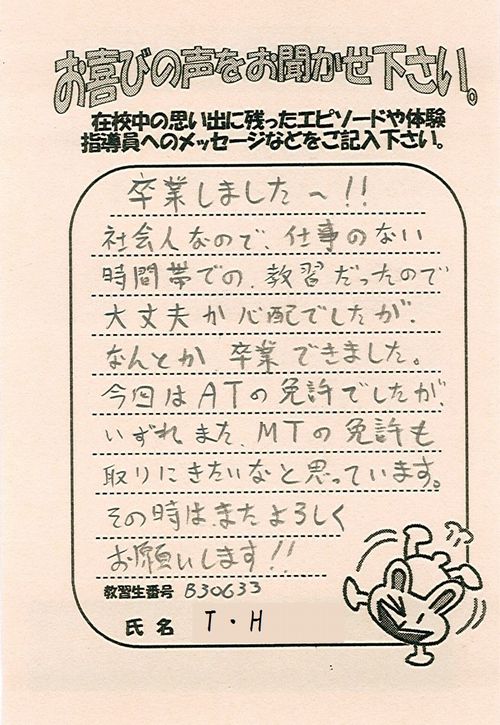 お喜びの声をお聞かせ下さい。
在校中の思い出に残ったエピソードや体験
指導員へのメッセージなどをご記入下さい。
卒業しました～!!
社会人なので、仕事のない
時間帯での、教習だったので
大丈夫か心配でしたが、
なんとか卒業できました。
今回はATの免許でしたが、
いずれまた、MTの免許も
取りにきたいなと思っています。
その時は、またよろしく
お願いします!!
教習生番号 B30633
氏名 T・H